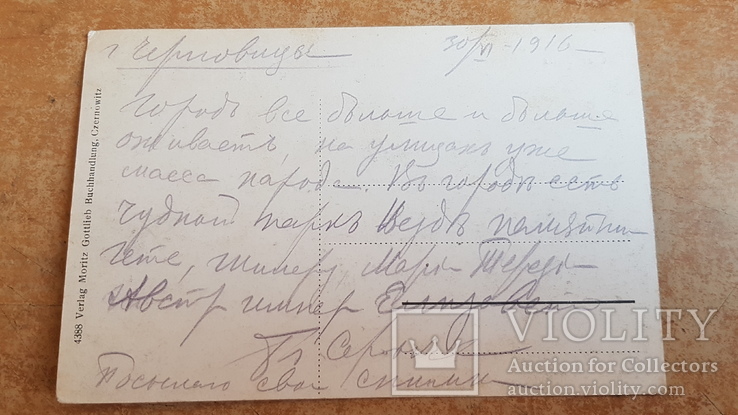 г Черновицы
30/VI-1916
Городъ все больше и больше
оживаетъ, на улицахъ уже
масса народа. Въ городѣ есть
чудной паркъ Вездѣ памятни
Гете, Шилеру Марiи Терезы
Австр импер Елизовет
Посылаю свои снимки
4388 Verlag Moritz Gottlieb Buchhandlung, Czernowitz
VIOLITY
Auction for Collectors
auction.violity.com